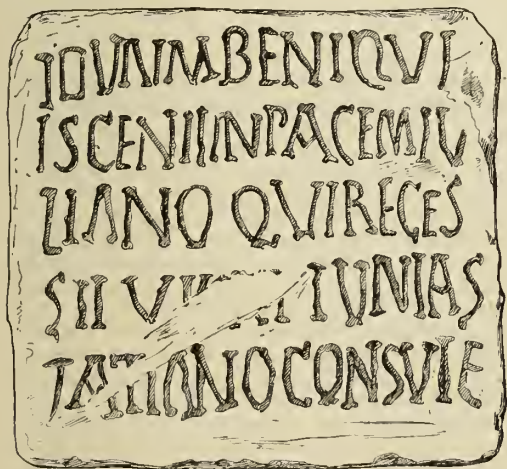 IDVNIMBENIQVI
ISCENIIINPACEMIV
LIANO QVIRECES
SII IVNIAS
TATIANOCONSVIE